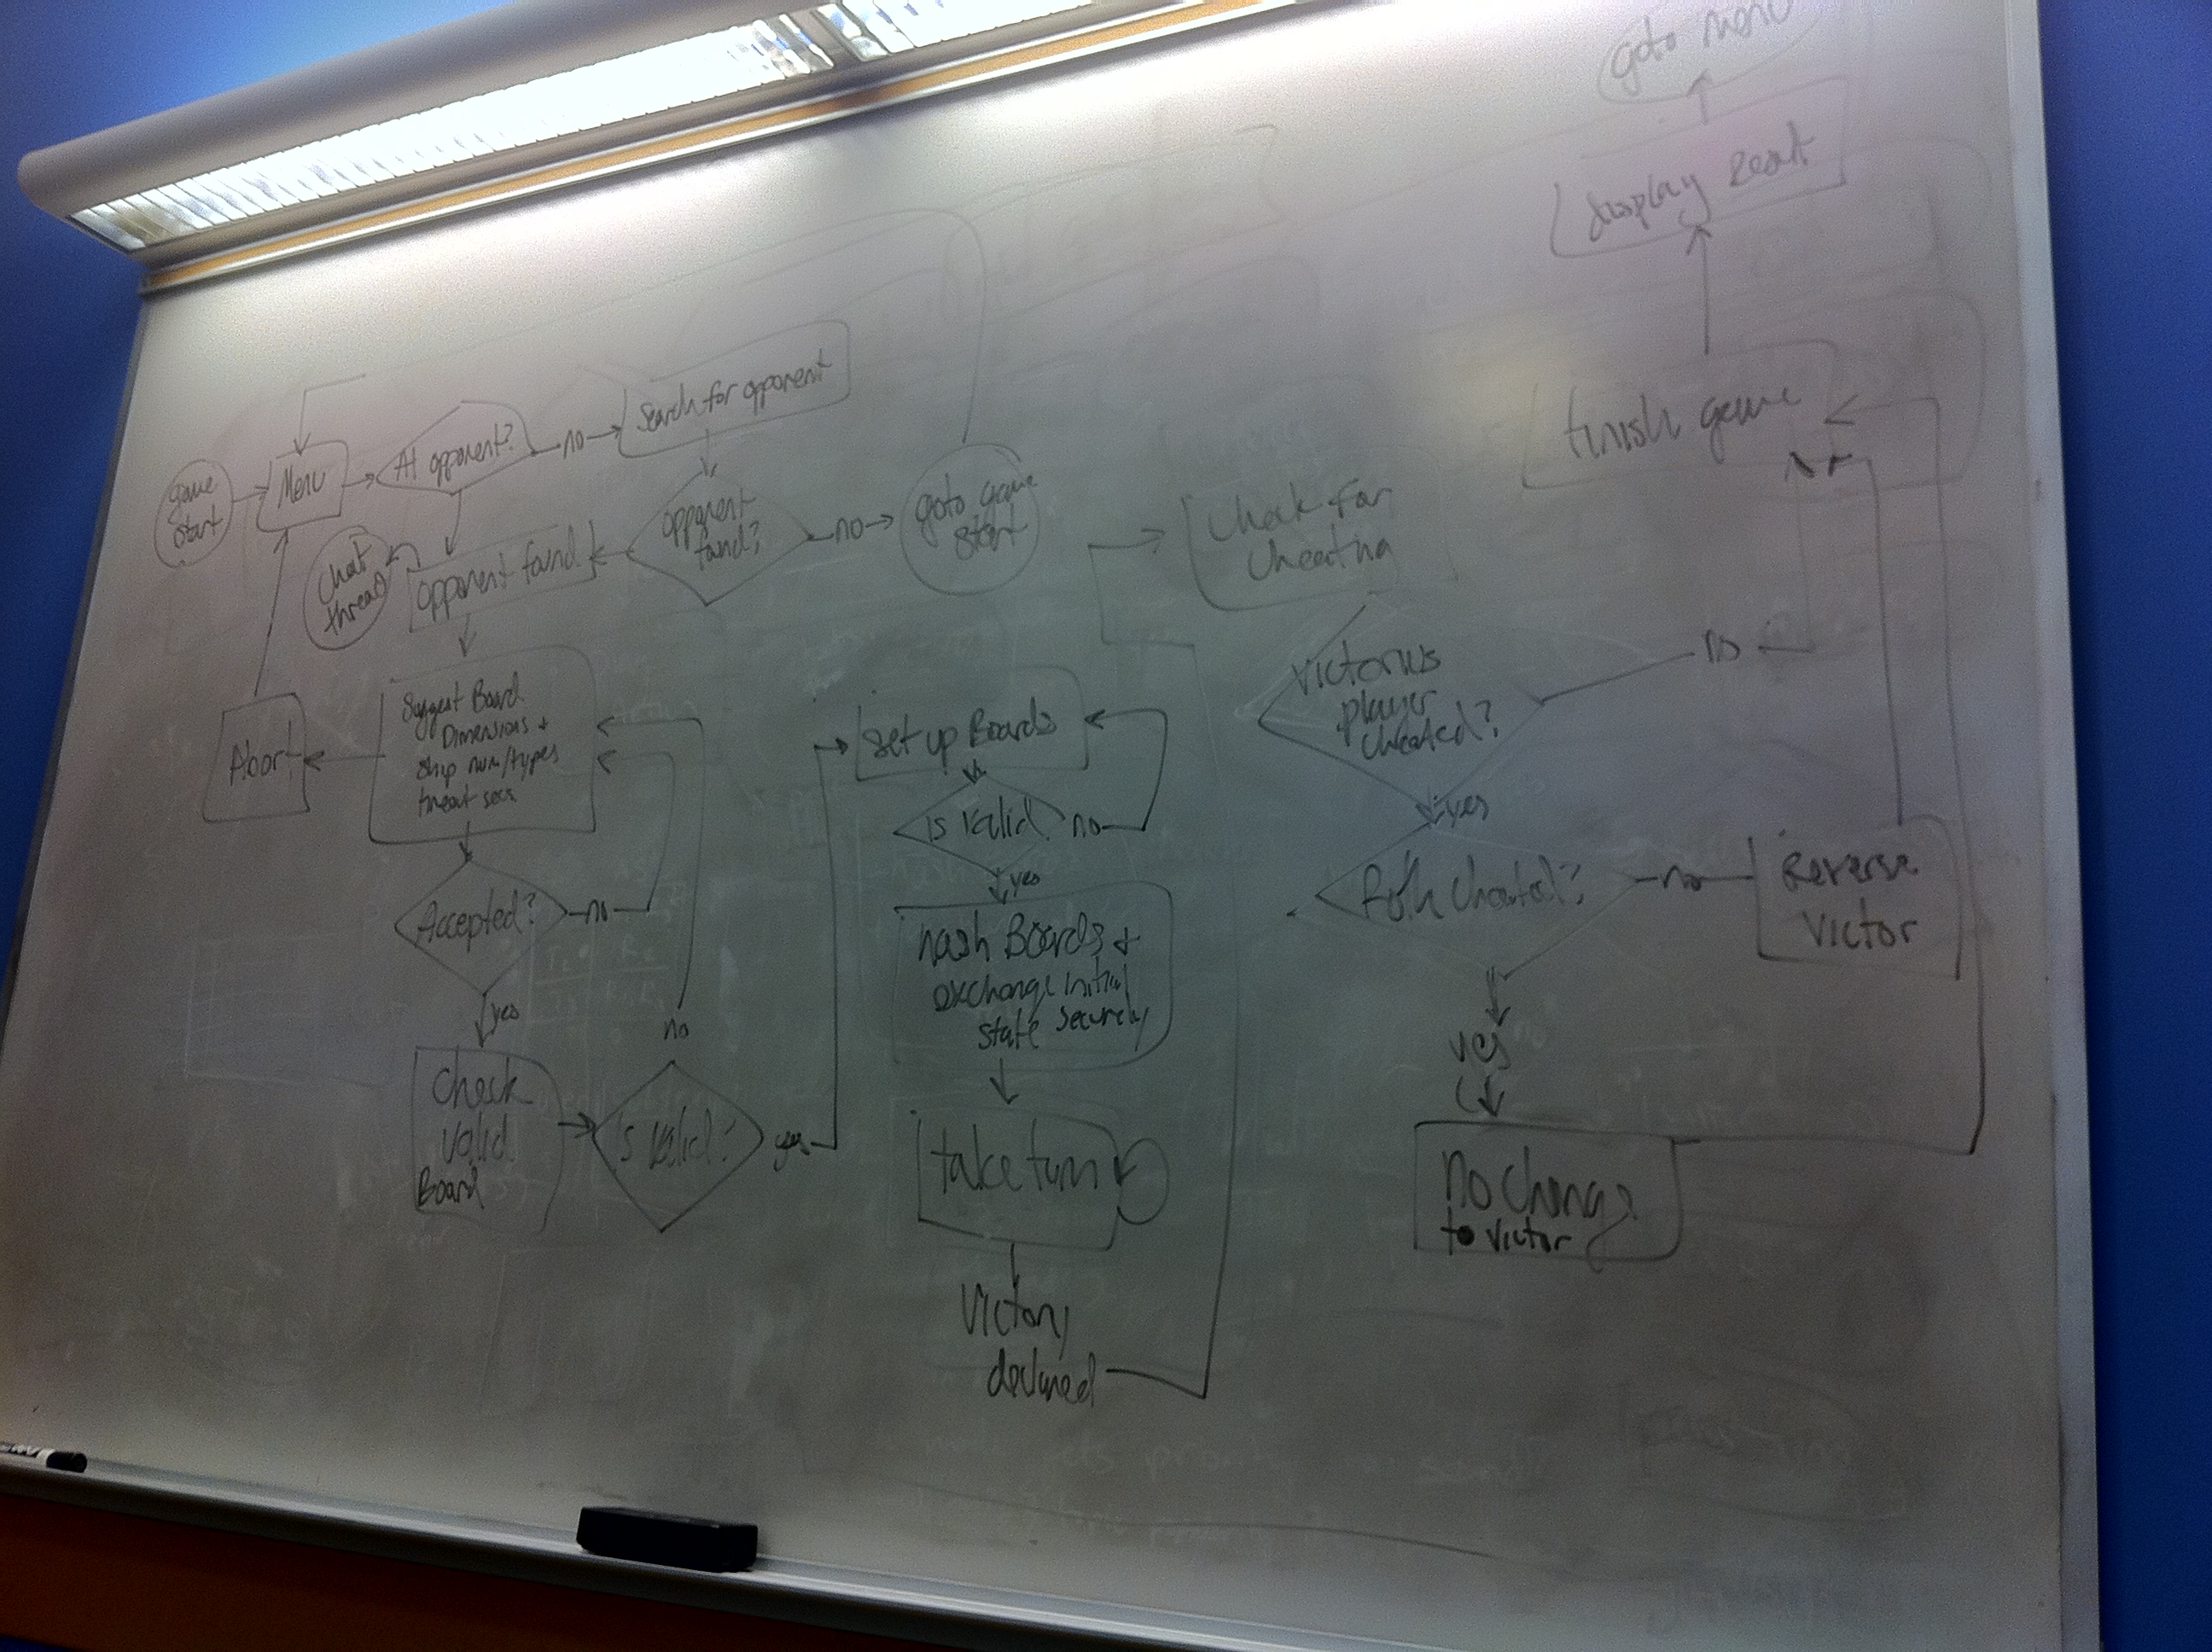 goto menu
display result
finish game
game
start
Menu
AI opponent?
no
Search for opponent
opponent
found?
no
goto game
start
opponent found
chat
thread
Suggest Board
Dimensions +
ship num/types
timeout secs
Abort
Accepted?
no
yes
check
valid
Board
is valid?
no
yes
set up Boards
is valid
no
yes
hash Boards +
exchange initial
state securely
take turn
Victory
declared
check for
cheating
victorius
player
cheated?
no
yes
Both cheated?
no
Reverse
victor
yes
no change
to victor